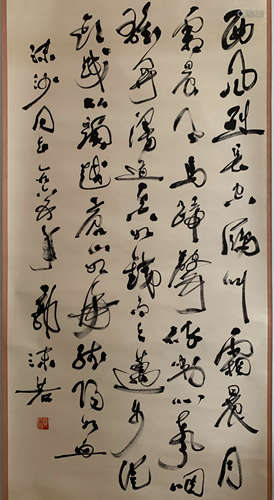 西风烈长空雁叫霜晨月
霜晨月马蹄聲碎喇叭聲咽
雄关漫道真如铁而今迈步從
頭越從頭越苍山如海残阳如血
沙同志 郭沫若